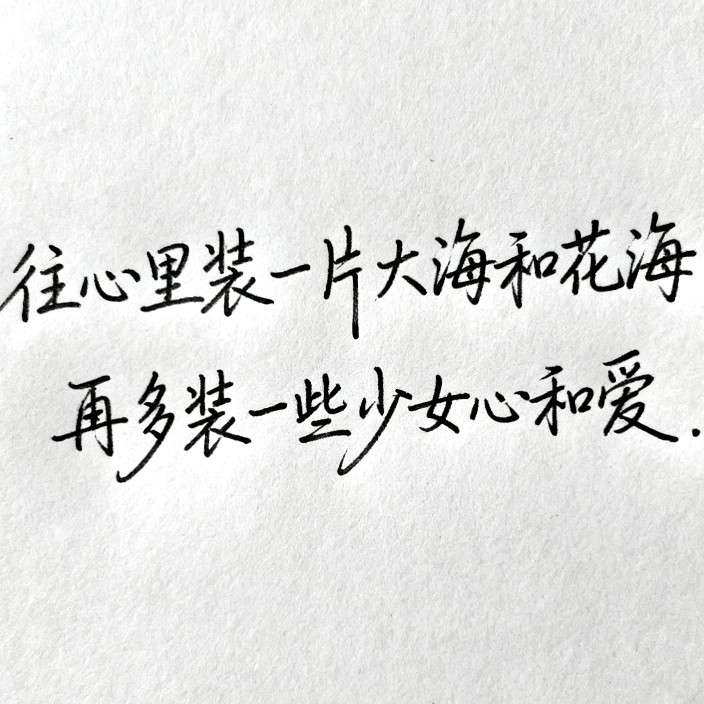 往心里装一片大海和花海
再多装一些少女心和爱.